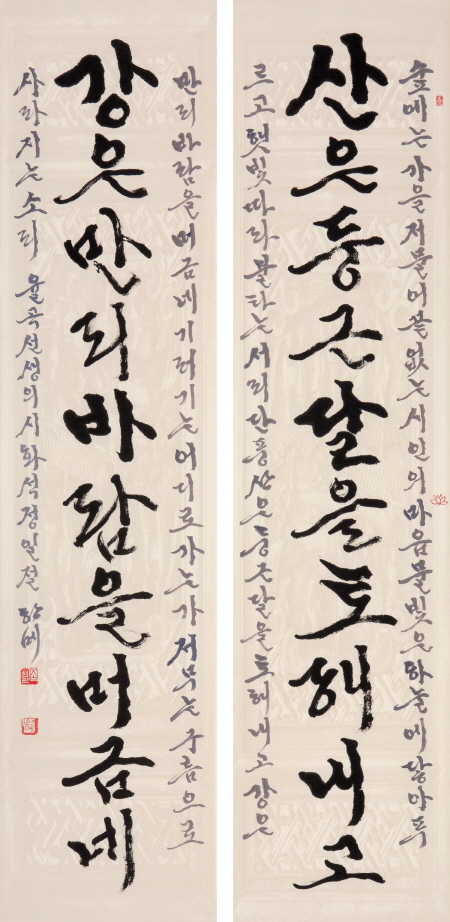 숲에는 가을 저물어 끝없는 시인의 마음 물빛은 하늘에 닿아 푸
산은 둥근 달을 토해내고
르고 햇빛 따라 불타는 서리 단풍 산은 둥근 달을 토해내고 강은
만리 바람을 머금네 기러기는 어디로 가는가 저무는 구름으로
강은 만리 바람을 머금네
사라지는 소리 율곡선생의 시 화석정 일절